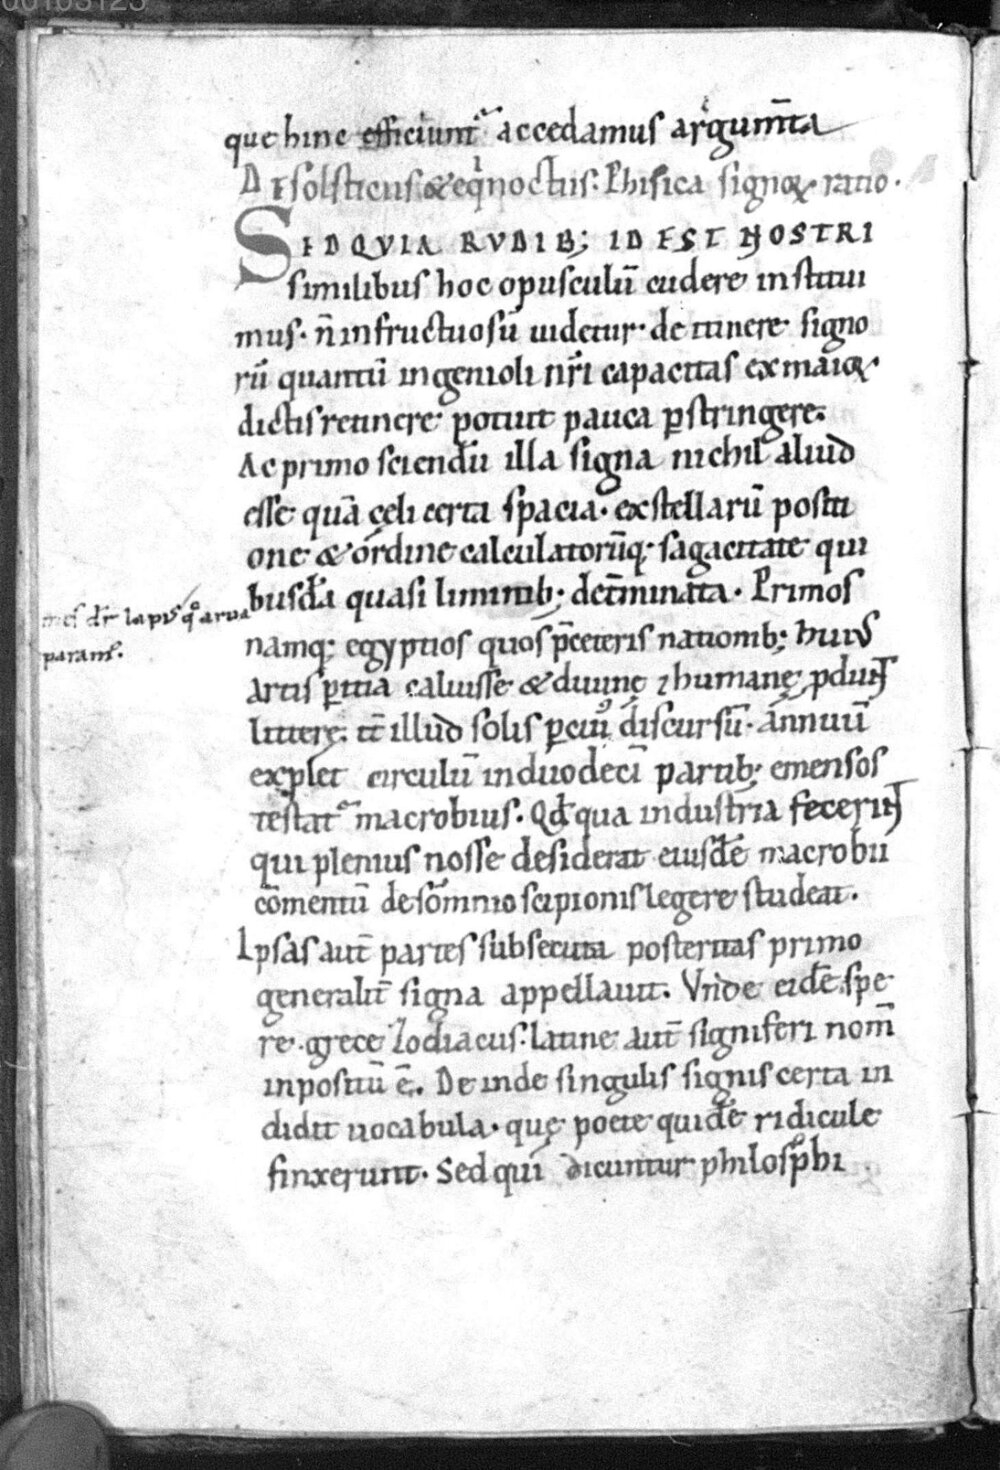 00105125
que hinc efficiunt᷑ accedamus argum̄ta
De solsticiis & eqͥnoctiis. Phisica signoꝝ ratio.
SED QVIA RVDIB; ID EST NOSTRI
similibus hoc opusculū cudere institui
mus. n̄ infructuosū uidetur. de itinere signo
rū quantū ingenioli nr̄i capacitas ex maioꝝ
dictis retinere potuit pauca ꝑstringere.
Ac primo sciendū illa signa nichil aliud
esse quā cęli certa spacia. ex stellarū positi
one & ordine calculatorūq; sagacitate qui
busdā quasi limitib; det̄minata. Primos
mes dr̄ lapis qͦ arua
namq; egyptios quos p̄ceteris nationib; huiꝰ
parant᷑.
artis ꝑitia caluisse & diuinę ⁊ humanę ꝓdunt
litterę. tī illud solis ꝑ ciūͦ discursū. annuū
exp̱let circulū in duodecī partib; emensos
testat᷑ macrobius. Qđ qua industria fecerint
qui plenius nosse desiderat eiusdē macrobii
cōmentū de somnio scipionis legere studeat.
Ipsas aut̄ partes subsecuta posteritas primo
generalit̄ signa appellauit. Vnde eidē spe
re. grece zodiacus. latine aut̄ signiferi nom̄
inpositū ē. Deinde singulis signis certa in
didit uocabula. quę poete quidē ridicule
finxerunt. Sed qui dicuntur philosͦphi